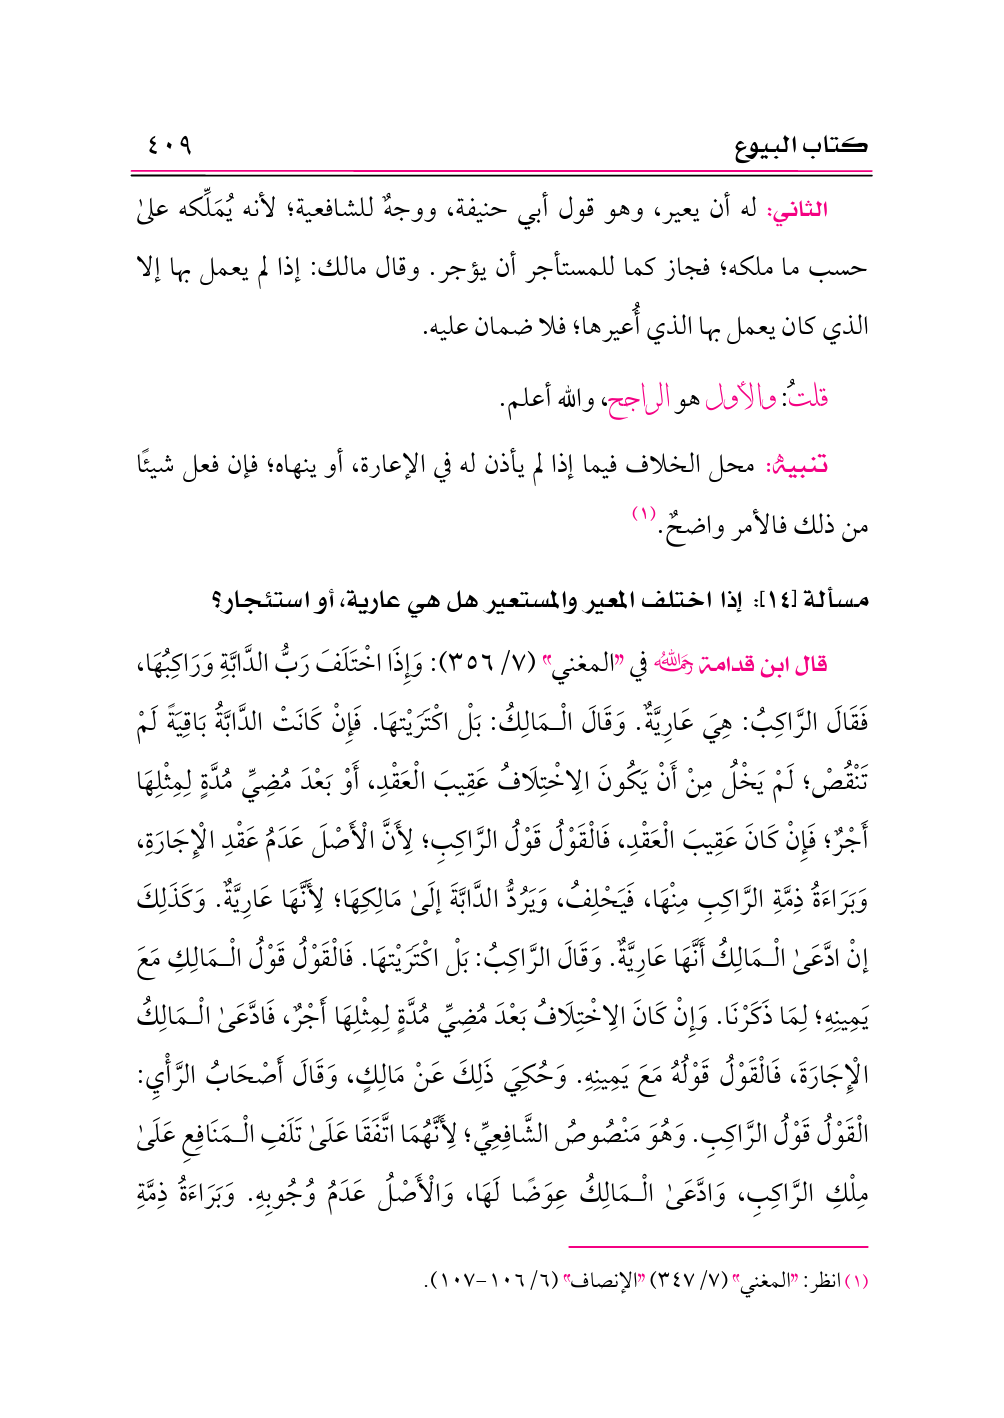 كتاب البيوع ٤٠٩
الثاني: له أن يعير، وهو قول أبي حنيفة، ووجهٌ للشافعية؛ لأنه يُمَلِّكه علىٰ
حسب ما ملكه؛ فجاز كما للمستأجر أن يؤجر. وقال مالك: إذا لم يعمل بها إلا
الذي كان يعمل بها الذي أُعيرها؛ فلا ضمان عليه.
قلتُ: والأول هو الراجح، والله أعلم.
تنبيهٌ: محل الخلاف فيما إذا لم يأذن له في الإعارة، أو ينهاه؛ فإن فعل شيئًا
من ذلك فالأمر واضحٌ.(١)
مسألة [١٤]: إذا اختلف المعير والمستعير هل هي عارية، أو استئجار؟
قال ابن قدامة رحمه الله في "المغني" (٧/ ٣٥٦): وَإِذَا اخْتَلَفَ رَبُّ الدَّابَّةِ وَرَاكِبُهَا،
فَقَالَ الرَّاكِبُ: هِيَ عَارِيَّةٌ. وَقَالَ الْـمَالِكُ: بَلْ اكْتَرَيْتهَا. فَإِنْ كَانَتْ الدَّابَّةُ بَاقِيَةً لَمْ
تَنْقُصْ؛ لَمْ يَخْلُ مِنْ أَنْ يَكُونَ الِاخْتِلَافُ عَقِيبَ الْعَقْدِ، أَوْ بَعْدَ مُضِيِّ مُدَّةٍ لِمِثْلِهَا
أَجْرٌ؛ فَإِنْ كَانَ عَقِيبَ الْعَقْدِ، فَالْقَوْلُ قَوْلُ الرَّاكِبِ؛ لِأَنَّ الْأَصْلَ عَدَمُ عَقْدِ الْإِجَارَةِ،
وَبَرَاءَةُ ذِمَّةِ الرَّاكِبِ مِنْهَا، فَيَحْلِفُ، وَيَرُدُّ الدَّابَّةَ إلَىٰ مَالِكِهَا؛ لِأَنَّهَا عَارِيَّةٌ. وَكَذَلِكَ
إنْ ادَّعَىٰ الْـمَالِكُ أَنَّهَا عَارِيَّةٌ. وَقَالَ الرَّاكِبُ: بَلْ اكْتَرَيْتهَا. فَالْقَوْلُ قَوْلُ الْـمَالِكِ مَعَ
يَمِينِهِ؛ لِمَا ذَكَرْنَا. وَإِنْ كَانَ الِاخْتِلَافُ بَعْدَ مُضِيِّ مُدَّةٍ لِمِثْلِهَا أَجْرٌ، فَادَّعَىٰ الْـمَالِكُ
الْإِجَارَةَ، فَالْقَوْلُ قَوْلُهُ مَعَ يَمِينِهِ. وَحُكِيَ ذَلِكَ عَنْ مَالِكٍ، وَقَالَ أَصْحَابُ الرَّأْيِ:
الْقَوْلُ قَوْلُ الرَّاكِبِ. وَهُوَ مَنْصُوصُ الشَّافِعِيِّ؛ لِأَنَّهُمَا اتَّفَقَا عَلَىٰ تَلَفِ الْـمَنَافِعِ عَلَىٰ
مِلْكِ الرَّاكِبِ، وَادَّعَىٰ الْـمَالِكُ عِوَضًا لَهَا، وَالْأَصْلُ عَدَمُ وُجُوبِهِ. وَبَرَاءَةُ ذِمَّةِ
(١) انظر: "المغني" (٧/ ٣٤٧) "الإنصاف" (٦/ ١٠٦-١٠٧).